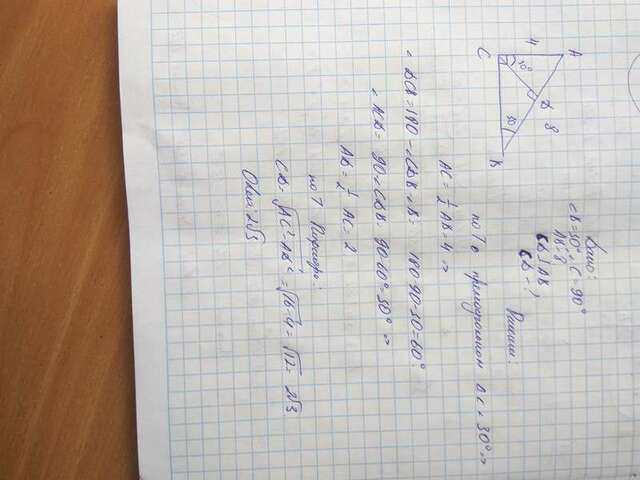 A
4
C
30°
D
8
30
B
Дано:
∠B=30°, ∠C=90°
AB=8
CD⊥AB
CD-?
Решение:
по Т о прямоугольном Δ с ∠30° =>
AC = 1/2 AB = 4 =>
∠DCB = 180-∠CDB-∠B = 180-90-30=60°
∠ACD = 90-∠CDB = 90-60°=30° =>
AD = 1/2 AC = 2
по Т Пифагора:
CD = √AC²-AD² = √16-4 = √12 = 2√3
Ответ: 2√3